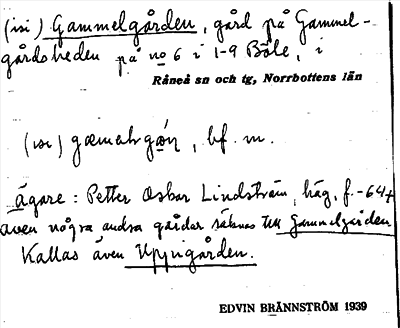 (isi) Gammelgården, gård på Gammel-
gårdsheden på no 6 i 1-9 Böle, i
Råneå sn och tg, Norrbottens län
(isi) gœmahrgǫ́n, bf. m.
ägare: Petter Oskar Lindström, häg, f. -64
även några andra gårdar räknas till Gammelgården
Kallas även Uppigården.
EDVIN BRÄNNSTRÖM 1939